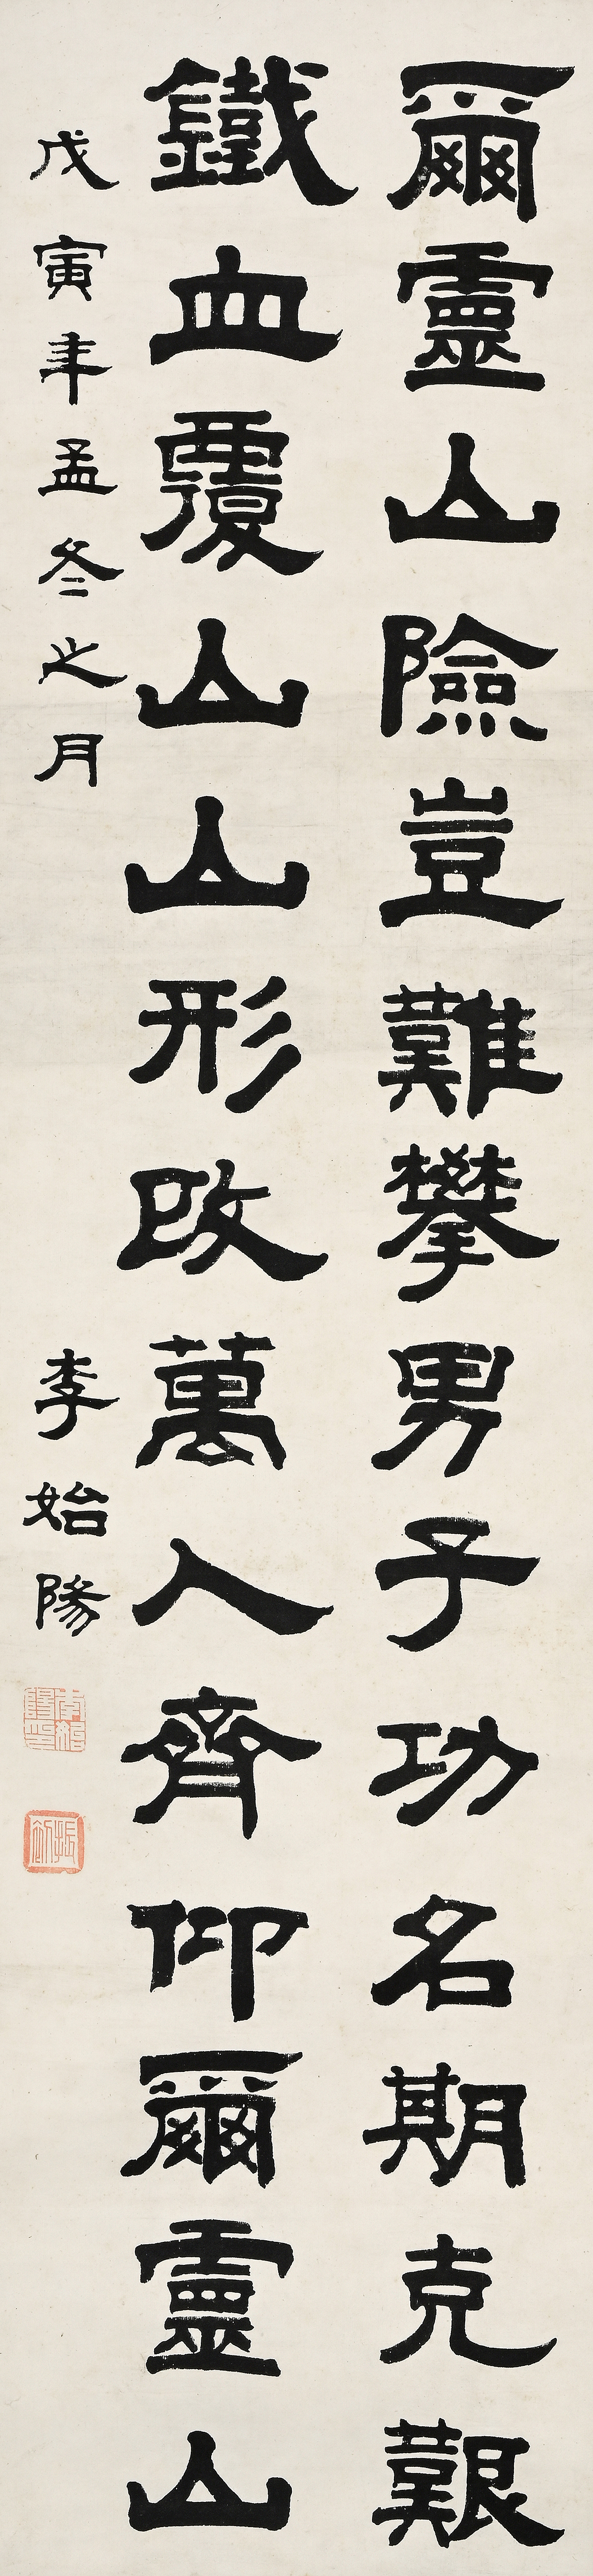 爾靈山險豈難攀男子功名期克艱
鐵血覆山山形改萬人齊仰爾靈山
戊寅年孟冬之月
李始陽